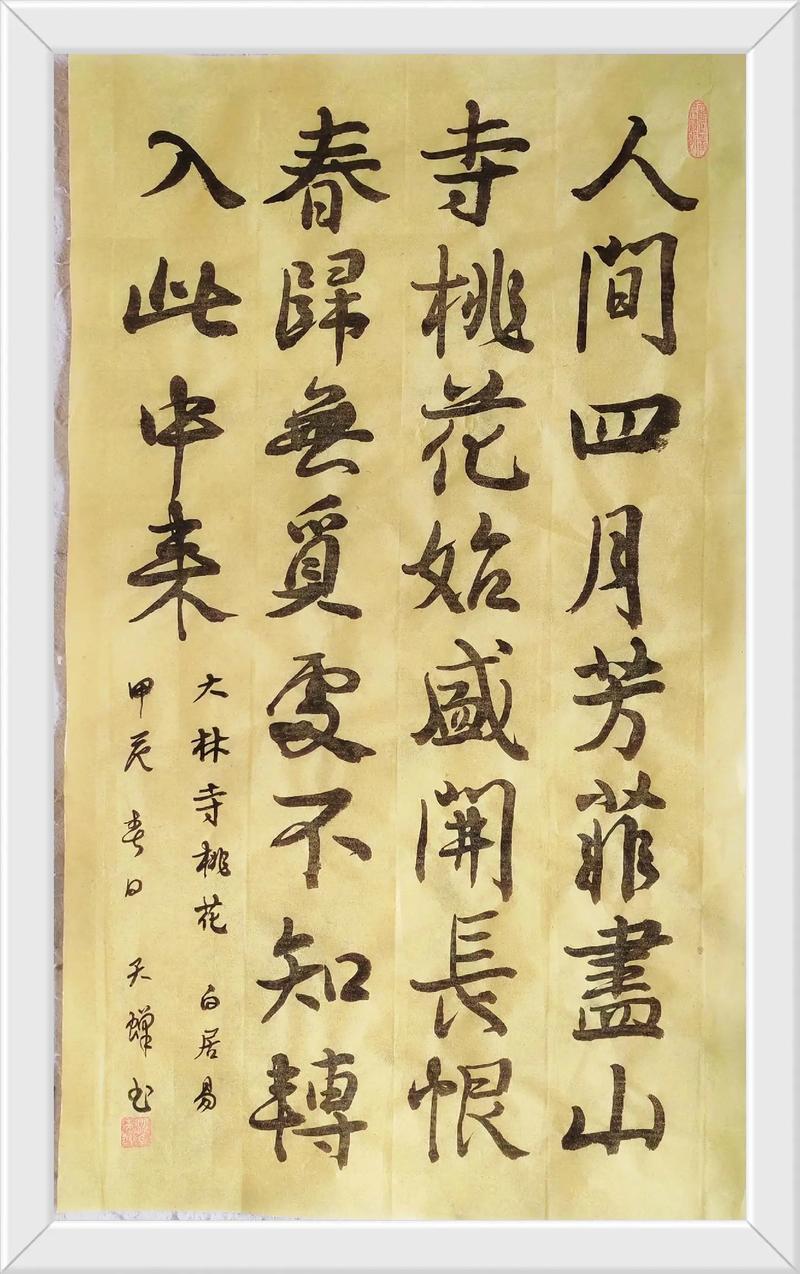 人間四月芳菲盡山
寺桃花始盛開長恨
春歸無覓處不知轉
入此中来
大林寺桃花 白居易
甲辰春日 天蟬书